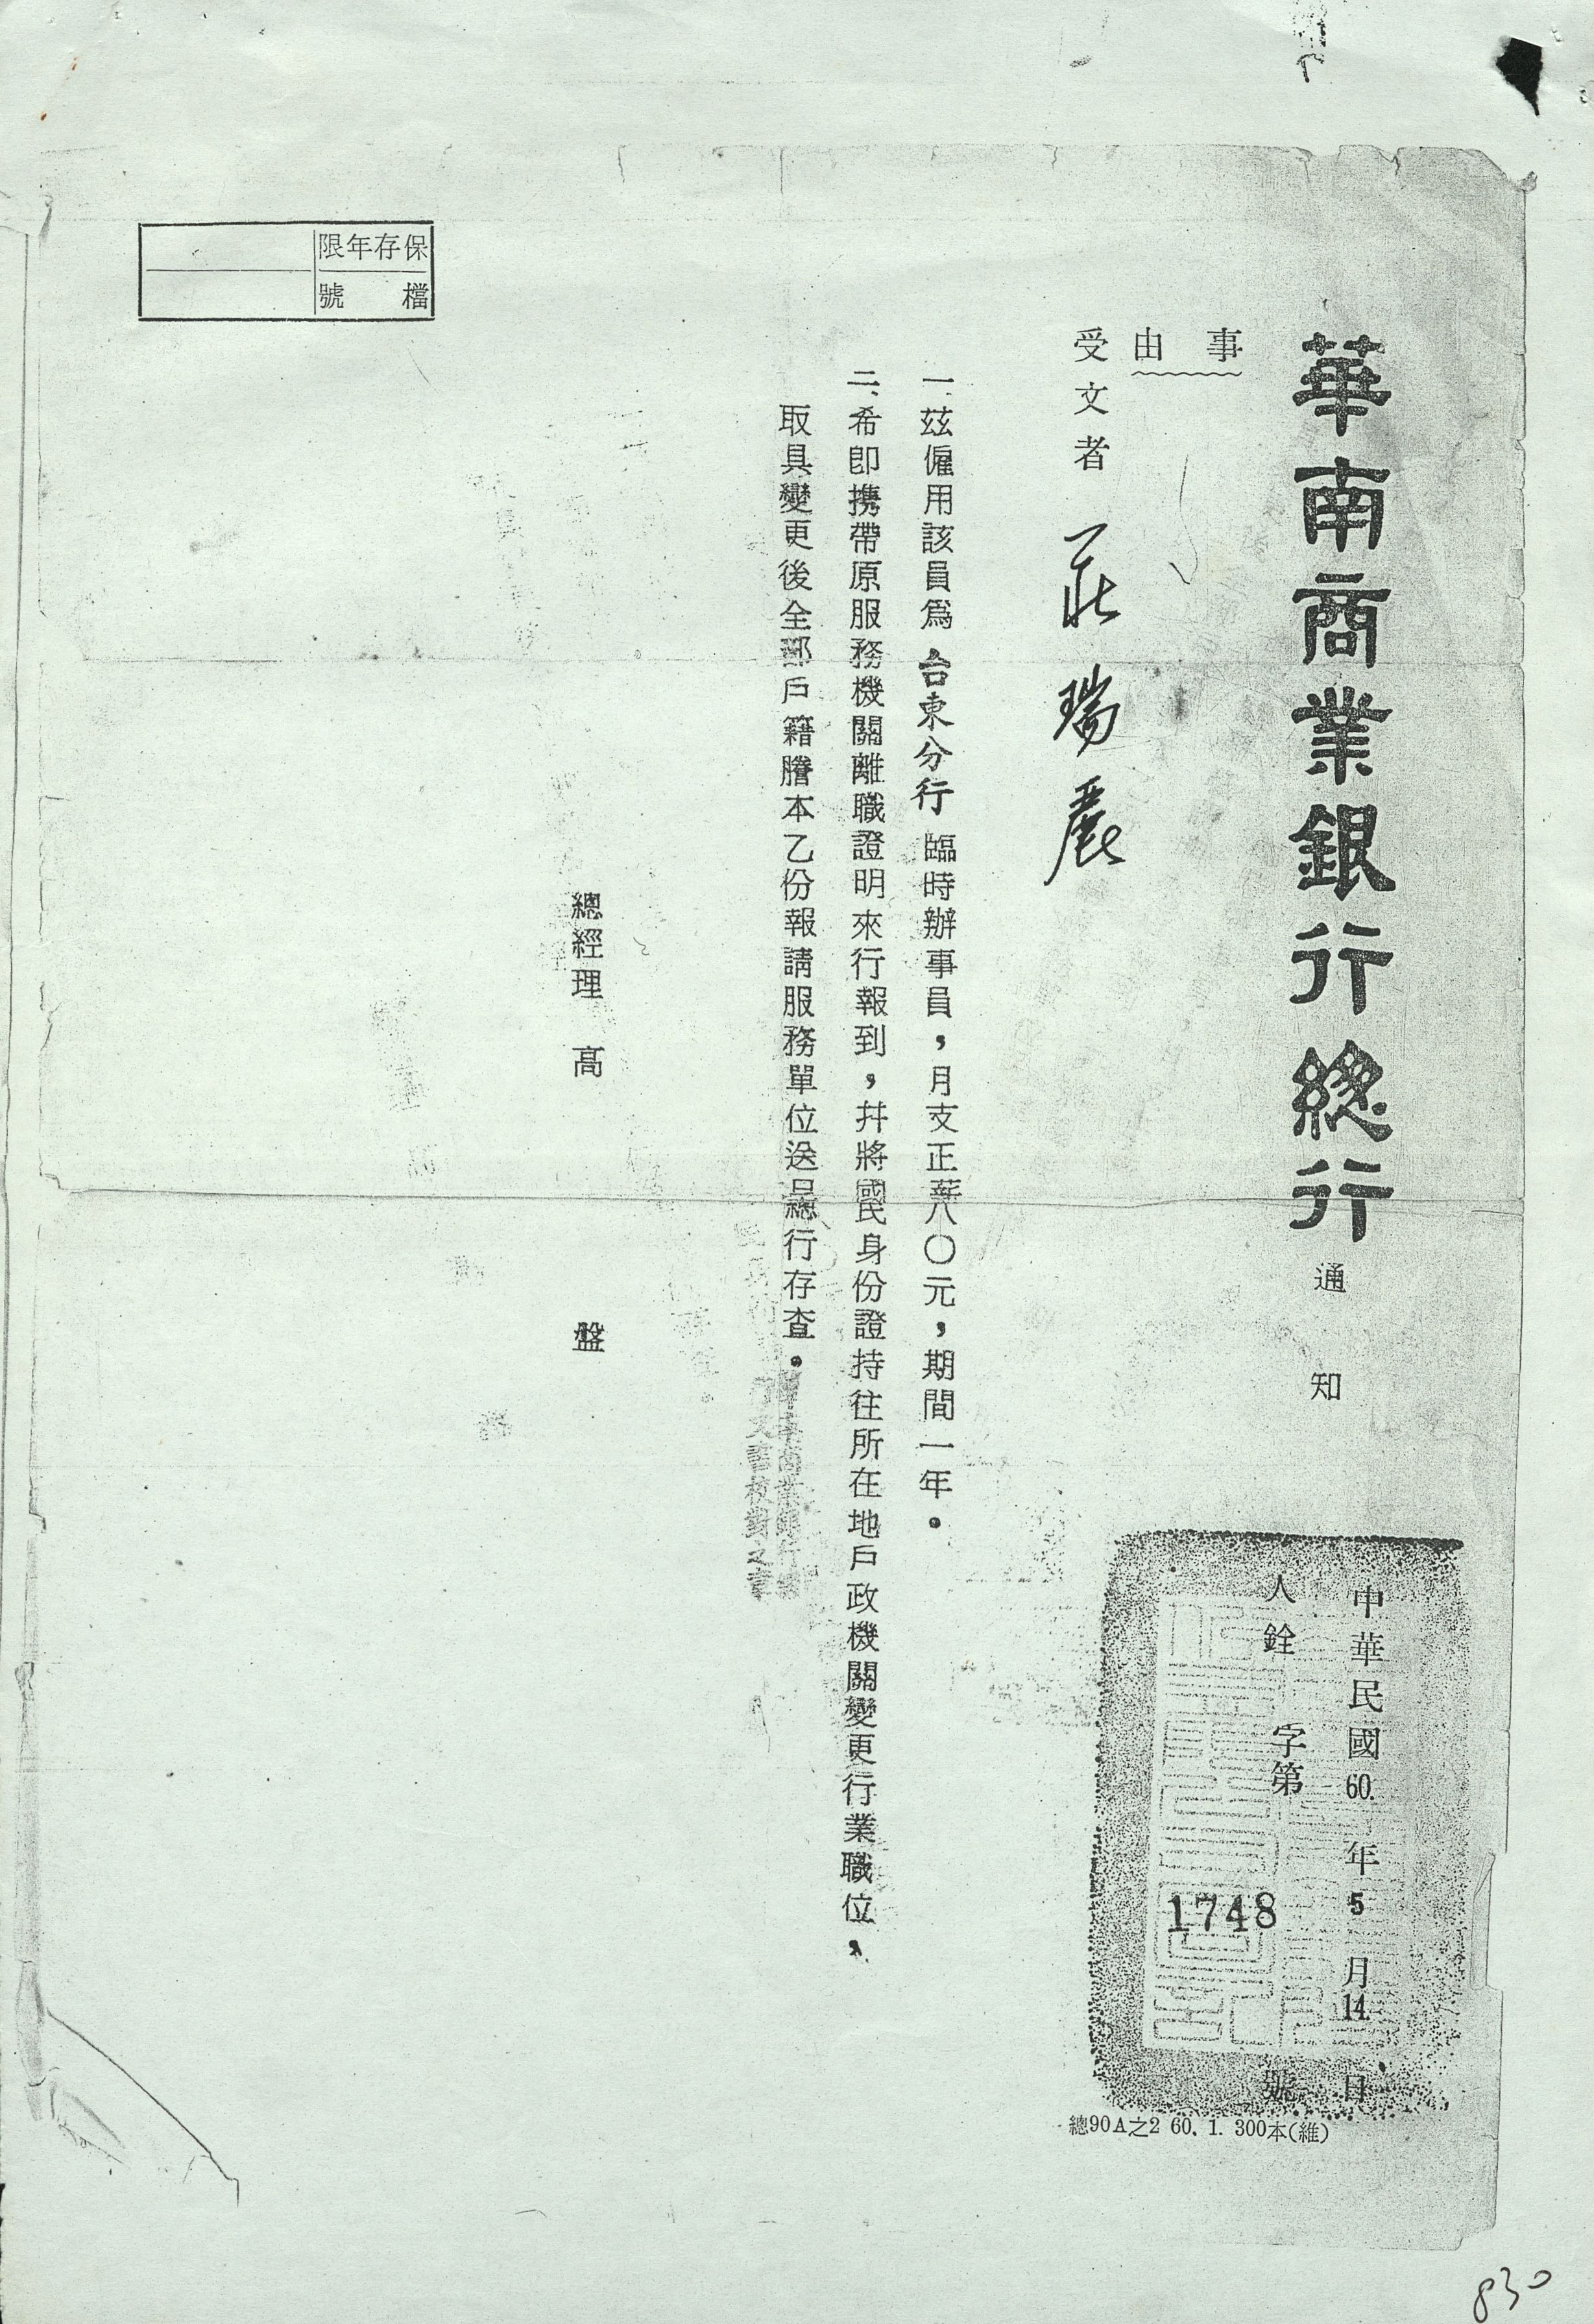 華南商業銀行總行 通知
中華民國60.年5月14.日
人銓字第1748號
總90A之2 60. 1. 300本(維)
事由
受文者 莊瑞麗
一、茲僱用該員為 台東分行 臨時辦事員，月支正薪八〇元，期間一年。
二、希即携帶原服務機關離職證明來行報到，幷將國民身份證持往所在地戶政機關變更行業職位，
取具變更後全部戶籍謄本乙份報請服務單位送呈總行存查。
總經理 高 盤
保存年限
檔號
830